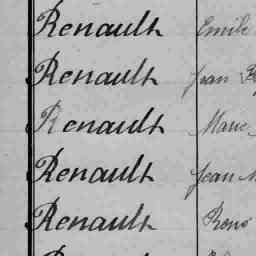 Renault Emile
Renault Jean
Renault Marie
Renault Jean
Renault René